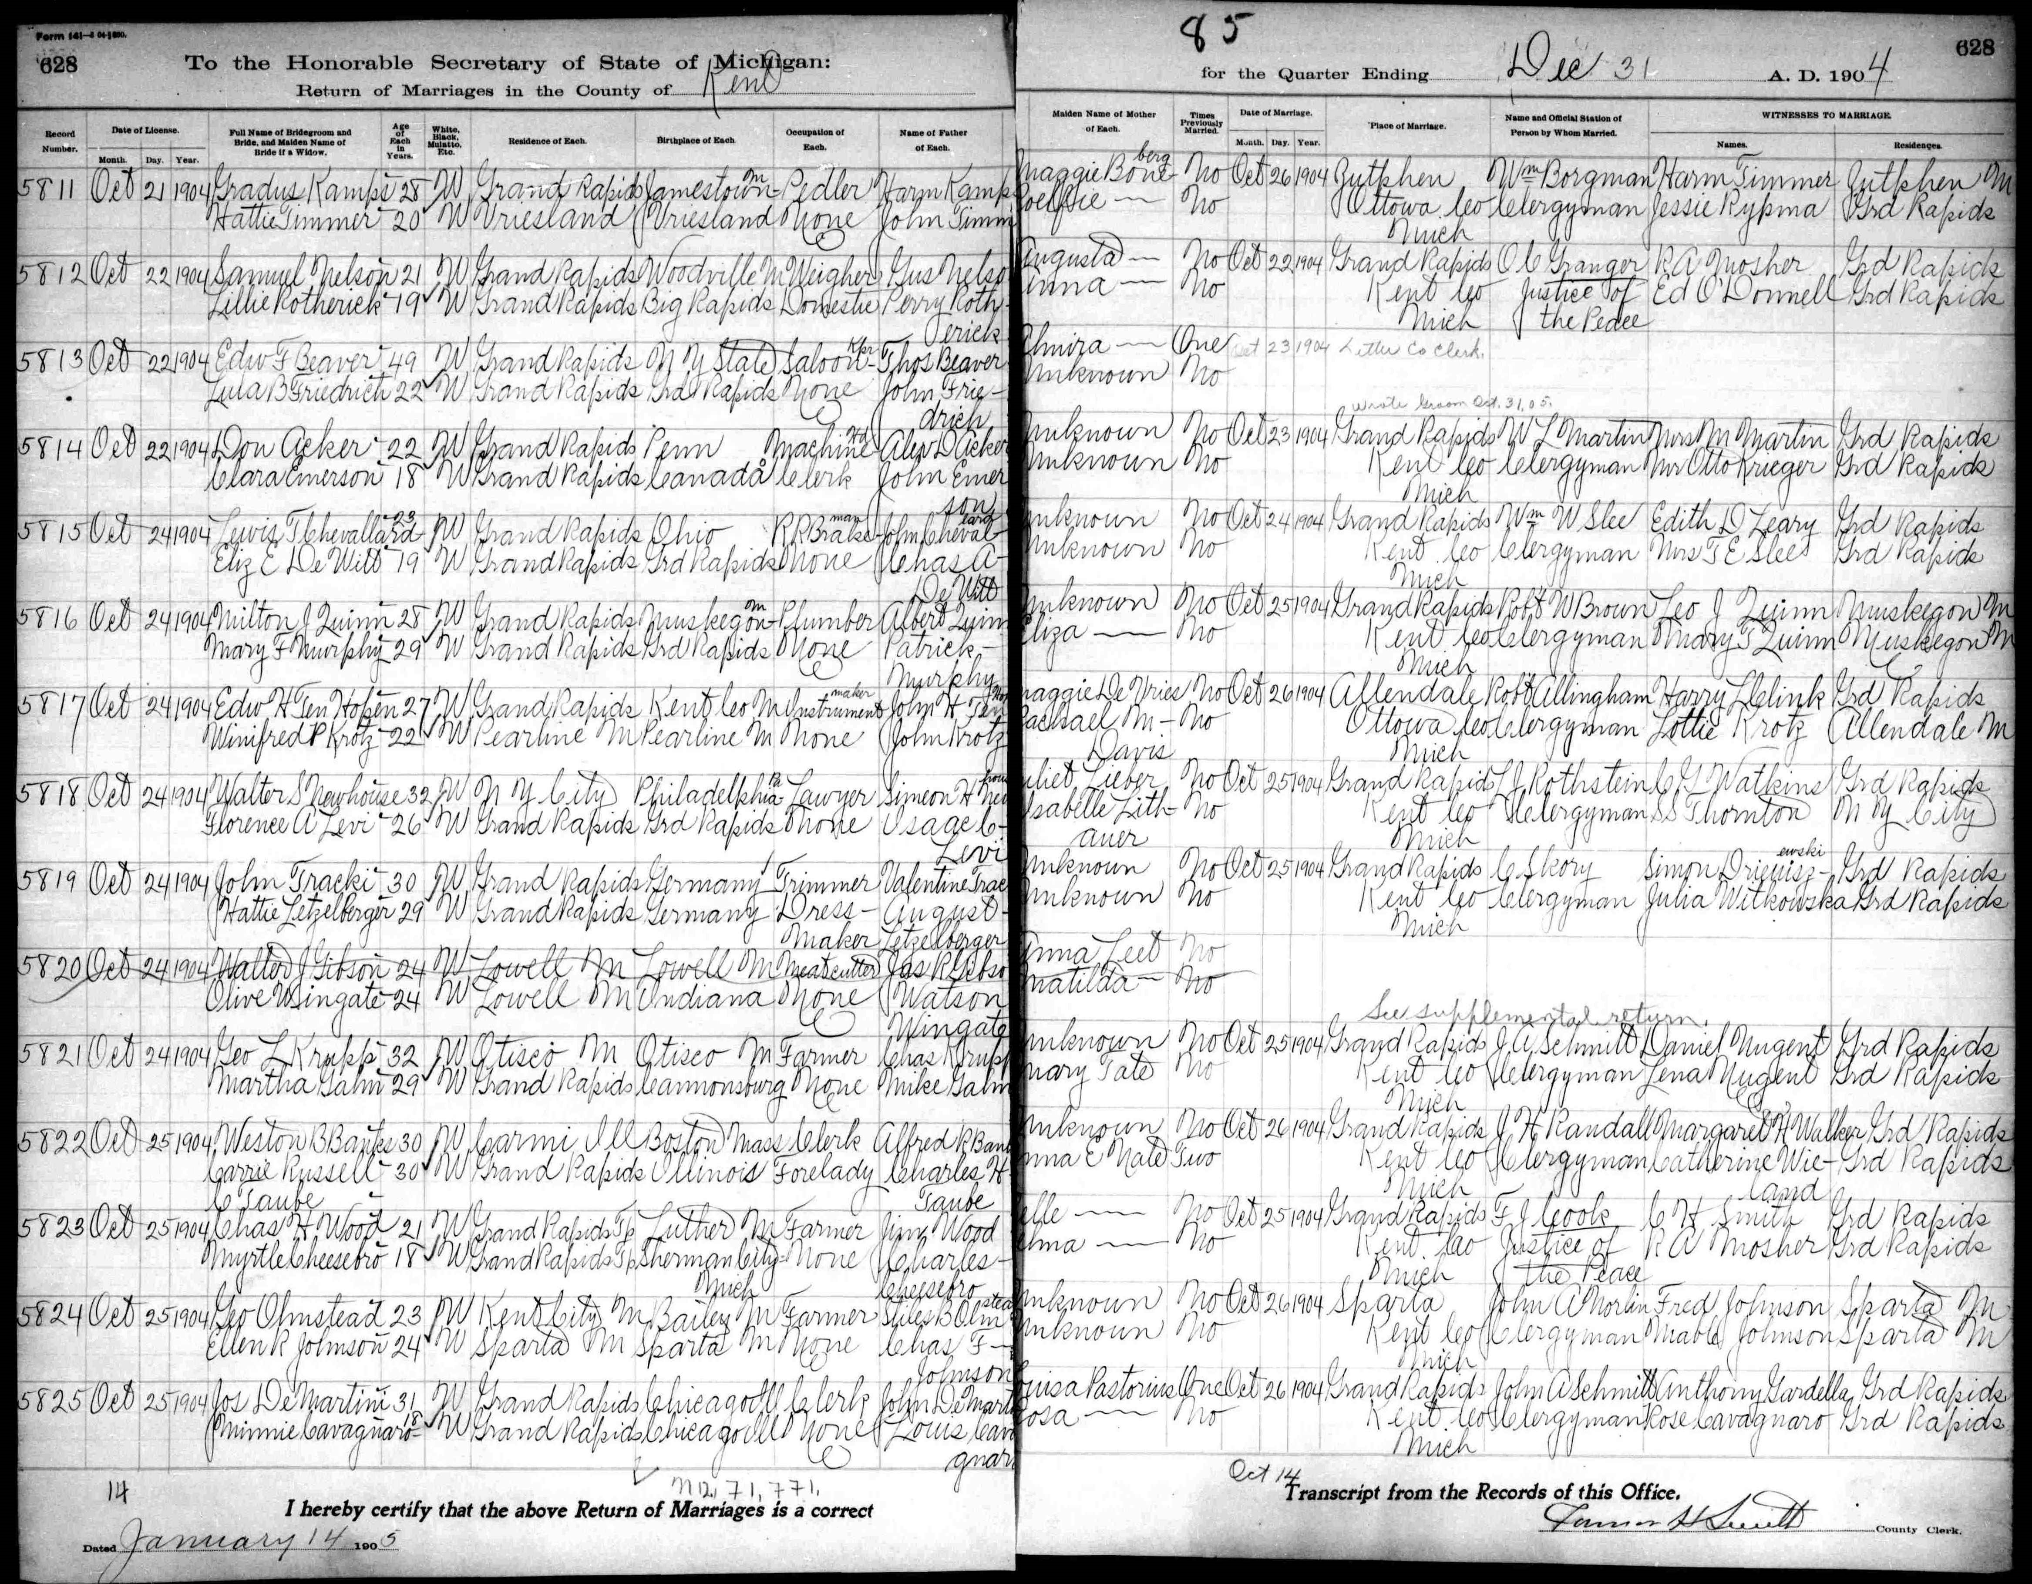 Form 141
628
To the Honorable Secretary of State of Michigan:
Return of Marriages in the County of Kent
Record Number.
Date of License.
Month. Day. Year.
Full Name of Bridegroom and Bride, and Maiden Name of Bride if a Widow.
Age of Each in Years.
White, Black, Mulatto, Etc.
Residence of Each.
Birthplace of Each.
Occupation of Each.
Name of Father of Each.
5811 Oct 21 1904 Gradus Kamps 28 W Grand Rapids Jamestown M Pedler Harm Kamp
Hattie Timmer 20 W Vriesland Vriesland None John Timm
5812 Oct 22 1904 Samuel Nelson 21 W Grand Rapids Woodville M Weigher Gus Nelso
Lillie Rotherick 19 W Grand Rapids Big Rapids Domestic Perry Roth-
erick
5813 Oct 22 1904 Edw F Beaver 49 W Grand Rapids N Y State Saloon Kpr Thos Beaver
Lula B Friedrich 22 W Grand Rapids Grd Rapids None John Frie-
drich
5814 Oct 22 1904 Don Acker 22 W Grand Rapids Penn Machine Hd Alex D Acker
Clara Emerson 18 W Grand Rapids Canada Clerk John Emer
son
5815 Oct 24 1904 Lewis F Chevallard 23 W Grand Rapids Ohio RR Brakeman John Cheval-
lard
Eliz E De Witt 19 W Grand Rapids Grd Rapids None Chas A-
De Witt
5816 Oct 24 1904 Milton J Quinn 28 W Grand Rapids Muskegon M Plumber Albert Quinn
Mary F Murphy 29 W Grand Rapids Grd Rapids None Patrick-
Murphy
5817 Oct 24 1904 Edw H Ten Hopen 27 W Grand Rapids Kent Co M Instrument maker John H Ten
Winifred P Krotz 22 W Pearline M Pearline M None John Krotz
5818 Oct 24 1904 Walter S Newhouse 32 W N Y City Philadelphia Pa Lawyer Simeon H New
Florence A Levi 26 W Grand Rapids Grd Rapids None Isaac C-
Levi
5819 Oct 24 1904 John Tracki 30 W Grand Rapids Germany Trimmer Valentine Trac
Hattie Letzelberger 29 W Grand Rapids Germany Dress- August-
Maker Letzelberger
5820 Oct 24 1904 Walter J Gibson 24 W Lowell M Lowell M Meatcutter Jas R Gibso
Olive Wingate 24 W Lowell M Indiana None Watson
Wingate
5821 Oct 24 1904 Geo L Krupp 32 W Otisco M Otisco M Farmer Chas Krupp
Martha Galm 29 W Grand Rapids Cannonsburg None Mike Galm
5822 Oct 25 1904 Weston B Banks 30 W Carmi Ill Boston Mass Clerk Alfred R Ban
Carrie Russell 30 W Grand Rapids Illinois Forelady Charles H-
C Taube Taube
5823 Oct 25 1904 Chas H Wood 21 W Grand Rapids Tp Luther M Farmer Jim Wood
Myrtle Cheesebro 18 W Grand Rapids Tp Sherman City None Charles-
Mich Cheesebro
5824 Oct 25 1904 Geo Olmstead 23 W Kent City M Bailey M Farmer Stiles B Olm
stead
Ellen R Johnson 24 W Sparta M Sparta M None Chas F-
Johnson
5825 Oct 25 1904 Jos De Martini 31 W Grand Rapids Chicago Ill Clerk John De Mart
Minnie Cavagnaro 18 W Grand Rapids Chicago Ill None Louis Cava
gnar
14
I hereby certify that the above Return of Marriages is a correct
Dated January 14 1905
85
628
for the Quarter Ending Dec 31 A. D. 1904
Maiden Name of Mother of Each.
Times Previously Married.
Date of Marriage.
Month. Day. Year.
Place of Marriage.
Name and Official Station of Person by Whom Married.
WITNESSES TO MARRIAGE.
Names. Residences.
Maggie Bone-berg No Oct 26 1904 Zutphen Wm Borgman Harm Timmer Zutphen M
Roelfie No Ottowa Co Clergyman Jessie Rypma Grd Rapids
Mich
Augusta No Oct 22 1904 Grand Rapids O C Granger R A Mosher Grd Rapids
No Kent Co Justice of Ed O'Donnell Grd Rapids
Mich the Peace
Elmira One Oct 23 1904 Letter Co Clerk.
Unknown No
Wrote Groom Oct. 31, 05.
Unknown No Oct 23 1904 Grand Rapids W L Martin Mrs M Martin Grd Rapids
Unknown No Kent Co Clergyman Mr Otto Krieger Grd Rapids
Mich
Unknown No Oct 24 1904 Grand Rapids Wm W Slee Edith D Zeary Grd Rapids
Unknown No Kent Co Clergyman Mrs T E Slee Grd Rapids
Mich
Unknown No Oct 25 1904 Grand Rapids Robt W Brown Leo J Quinn Muskegon M
Eliza No Kent Co Clergyman Mary T Quinn Muskegon M
Mich
Maggie De Vries No Oct 26 1904 Allendale Robt Allingham Harry L Clink Grd Rapids
Rachael M- No Ottowa Co Clergyman Lottie Krotz Allendale M
Davis Mich
Juliet Lieber No Oct 25 1904 Grand Rapids L J Rothstein C G Watkins Grd Rapids
Isabelle Lith- No Kent Co Clergyman S S Thornton N Y City
auer Mich
Unknown No Oct 25 1904 Grand Rapids C Skory Simon Driewisz-ewski Grd Rapids
Unknown No Kent Co Clergyman Julia Witkowska Grd Rapids
Mich
Anna Leet No
Matilda No
See supplemental return.
Unknown No Oct 25 1904 Grand Rapids J A Schmitt Daniel Nugent Grd Rapids
Mary Tate No Kent Co Clergyman Lena Nugent Grd Rapids
Mich
Unknown No Oct 26 1904 Grand Rapids J H Randall Margaret H Walker Grd Rapids
Anna E Nate Two Kent Co Clergyman Catherine Wie- Grd Rapids
Mich land
No Oct 25 1904 Grand Rapids F J Cook C H Smith Grd Rapids
No Kent Co Justice of R A Mosher Grd Rapids
Mich the Peace
Unknown No Oct 26 1904 Sparta John A Norlin Fred Johnson Sparta M
Unknown No Kent Co Clergyman Mable Johnson Sparta M
Mich
Louisa Pastorius One Oct 26 1904 Grand Rapids John A Schmitt Anthony Gardella Grd Rapids
Rosa No Kent Co Clergyman Rose Cavagnaro Grd Rapids
Mich
Oct 14
Transcript from the Records of this Office.
County Clerk.